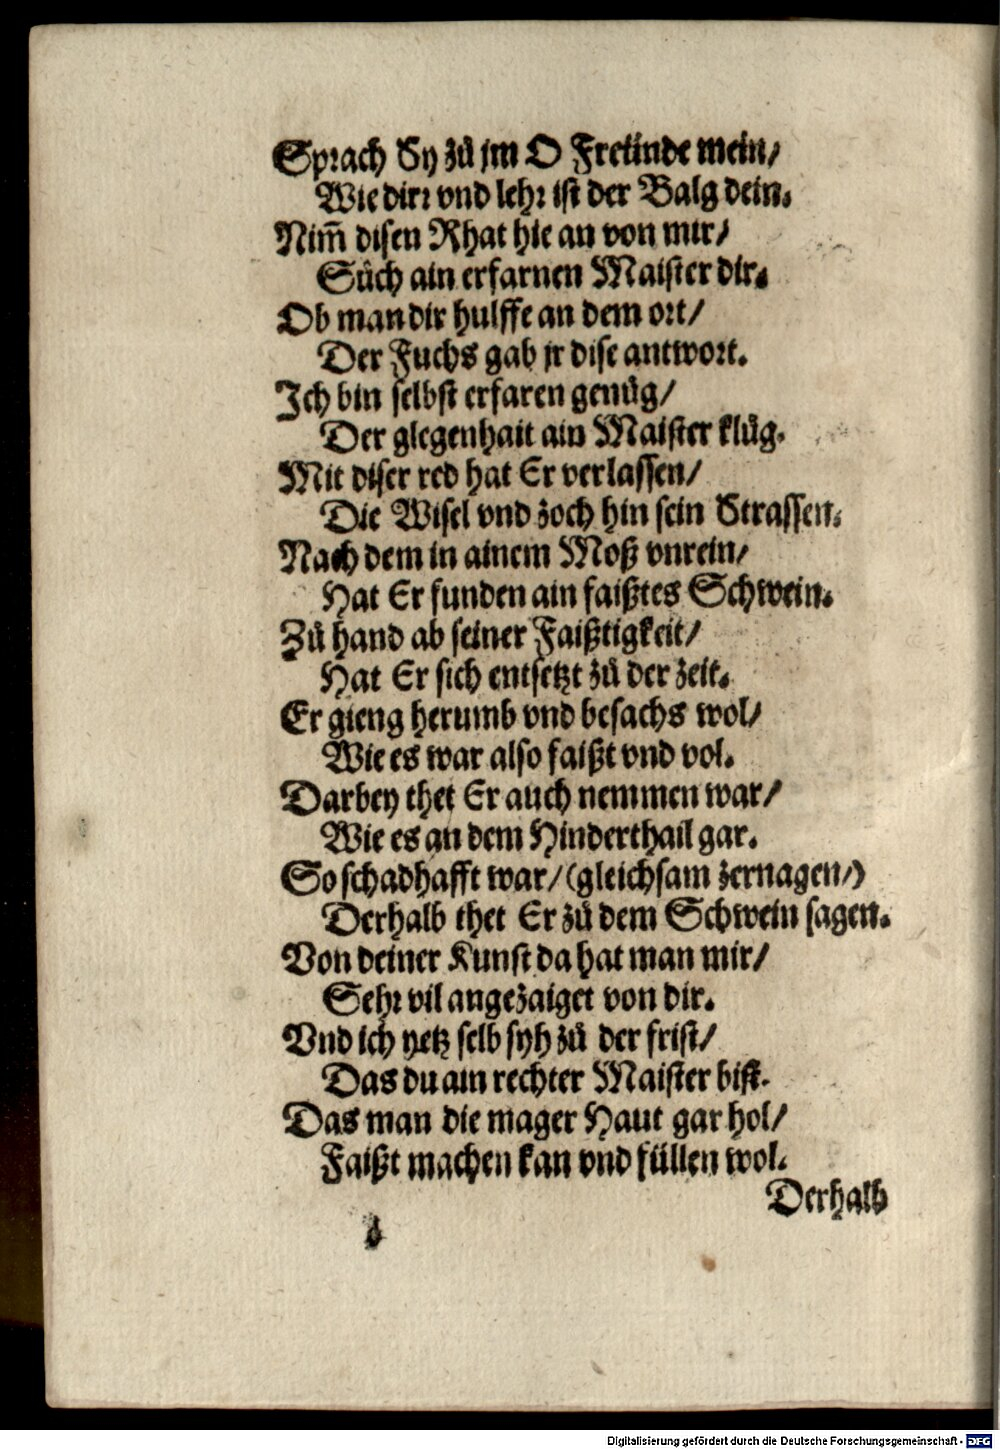 Sprach Sy zů jm O Freünde mein/
Wie dirr vnd lehr ist der Balg dein.
Nim̃ disen Rhat hie an von mir/
Sůch ain erfarnen Maister dir.
Ob man dir hulffe an dem ort/
Der Fuchs gab jr dise antwort.
Ich bin selbst erfaren genůg/
Der glegenhait ain Maister klůg.
Mit diser red hat Er verlassen/
Die Wisel vnd zoch hin sein Strassen.
Nach dem in ainem Moß vnrein/
Hat Er funden ain faißtes Schwein.
Zů hand ab seiner Faißtigkeit/
Hat Er sich entsetzt zů der zeit.
Er gieng herumb vnd besachs wol/
Wie es war also faißt vnd vol.
Darbey thet Er auch nemmen war/
Wie es an dem Hinderthail gar.
So schadhafft war/(gleichsam zernagen/)
Derhalb thet Er zů dem Schwein sagen.
Von deiner Kunst da hat man mir/
Sehr vil angezaiget von dir.
Vnd ich yetz selb syh zů der frist/
Das du ain rechter Maister bist.
Das man die mager Haut gar hol/
Faißt machen kan vnd füllen wol.
Derhalb
Digitalisierung gefördert durch die Deutsche Forschungsgemeinschaft - DFG